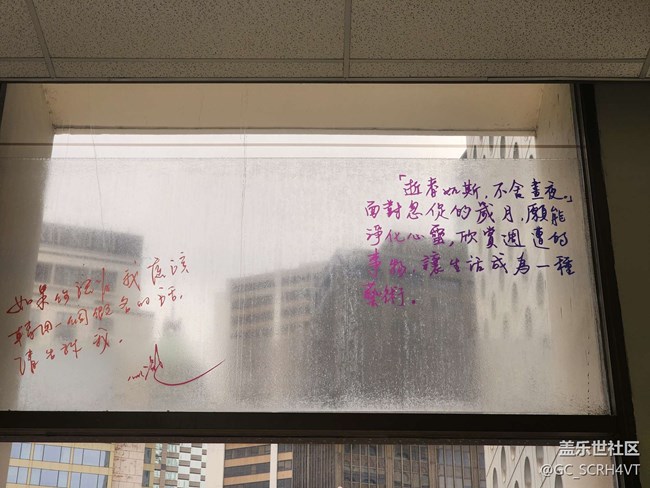 「逝者如斯,不舍晝夜。」
面對忽促的歲月,願能
淨化心靈,欣賞週遭的
事物,讓生活成為一種
藝術。
如果你認為我應該
用一個概念的話,
請告訴我。
盖乐世社区
@GC_SCRH4VT